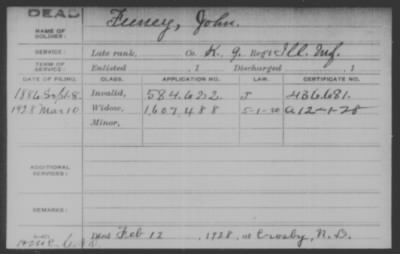 DEAD
NAME OF SOLDIER: Feeney, John.
SERVICE: Late rank, Co. K, 9, Reg't Ill. Inf.
TERM OF SERVICE: Enlisted , 1 Discharged , 1
DATE OF FILING. CLASS. APPLICATION NO. LAW. CERTIFICATE NO.
1886 Invalid, 584.622 J 436.681.
1928 Mar 10 Widow, 1,607,488 5-1-20 A 12-1-28
Minor,
ADDITIONAL SERVICES:
REMARKS:
Died Feb 12 , 1928, at Crosby, N.D.